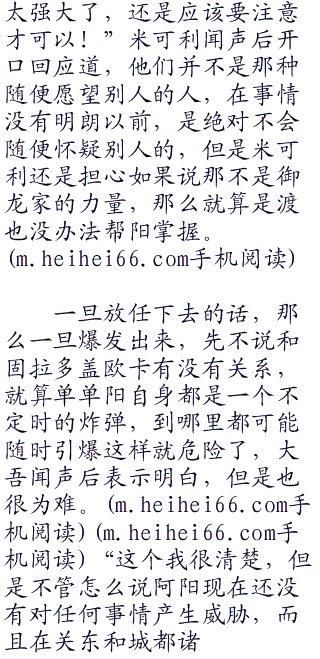 太强大了，还是应该要注意
才可以！”米可利闻声后开
口回应道，他们并不是那种
随便愿望别人的人，在事情
没有明朗以前，是绝对不会
随便怀疑别人的，但是米可
利还是担心如果说那不是御
龙家的力量，那么就算是渡
也没办法帮阳掌握。
(m.heihei66.com手机阅读)
一旦放任下去的话，那
么一旦爆发出来，先不说和
固拉多盖欧卡有没有关系，
就算单单阳自身都是一个不
定时的炸弹，到哪里都可能
随时引爆这样就危险了，大
吾闻声后表示明白，但是也
很为难。(m.heihei66.com手
机阅读)(m.heihei66.com手
机阅读)“这个我很清楚，但
是不管怎么说阿阳现在还没
有对任何事情产生威胁，而
且在关东和城都诸